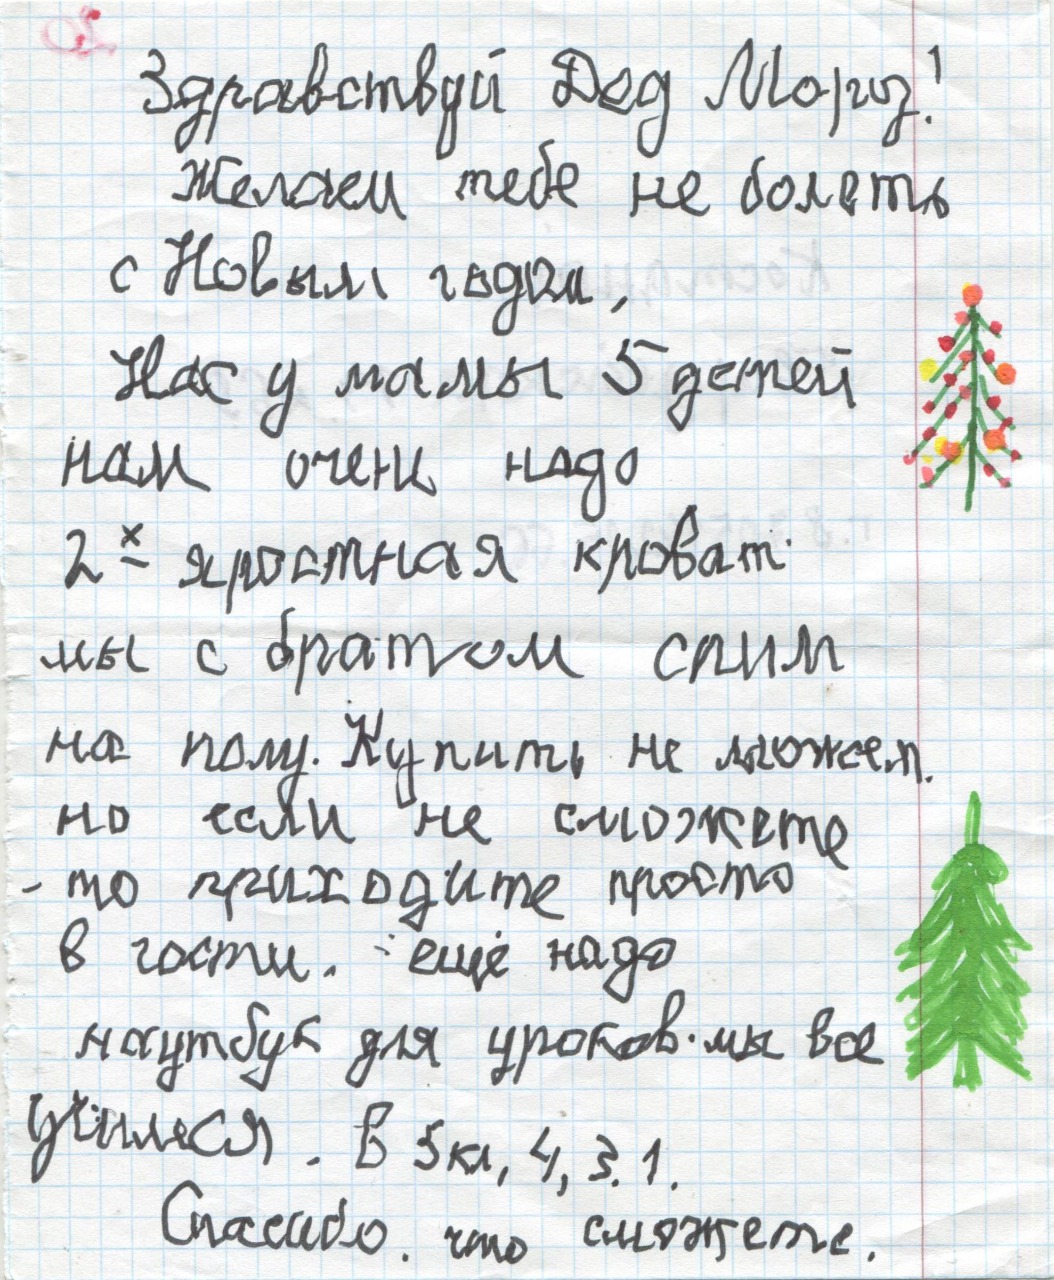 Здравствуй Дед Мороз!
Желаем тебе не болеть
с Новым годом,
Нас у мамы 5 детей
нам очень надо
2х - яростная кроват
мы с братом спим
на полу. Купить не можем.
но если не сможете
- то приходите просто
в гости. ещё надо
наутбук для уроков. мы все
учимся. В 5кл, 4, 3. 1.
Спасибо. что сможете.